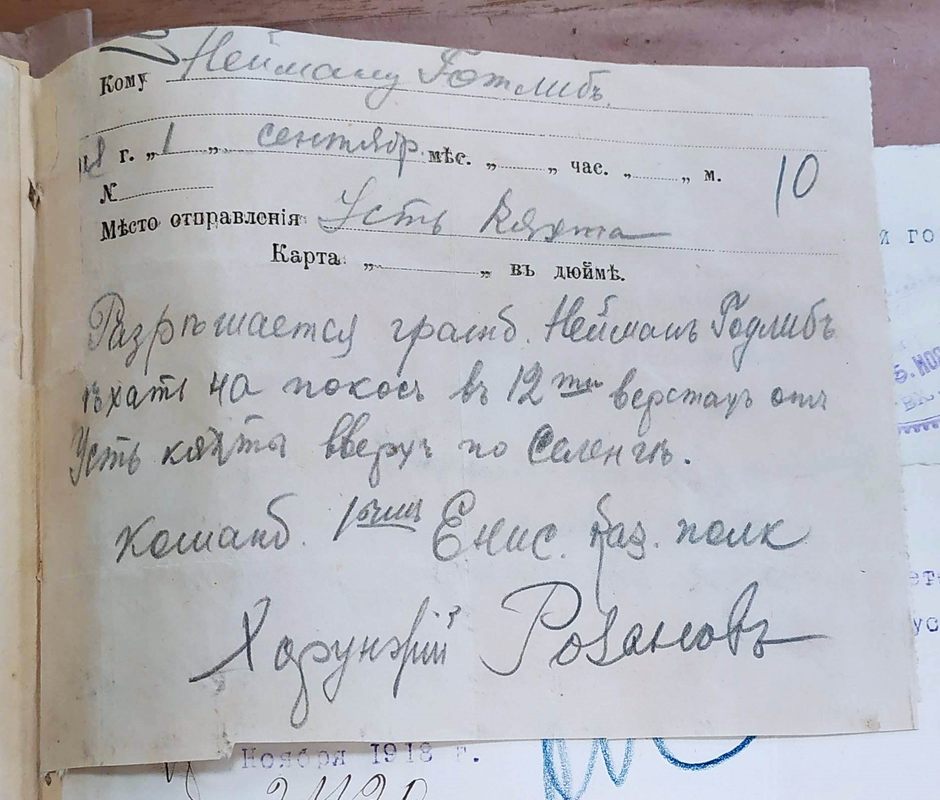 Кому Нейману Готлибъ.
8 г. „ 1 „ сентябр. мѣс. „ „ час. „ „ м.
10
№
Мѣсто отправленія Усть Кяхта
Карта „ „ въ дюймѣ.
Разрѣшается гражд. Нейманъ Годлибъ
ѣхать на покосъ въ 12ти верстахъ отъ
Усть кяхты вверхъ по Селенгѣ.
Команд. Енис. Каз. полк
Хорунжій Розановъ
Ноября 1918 г.